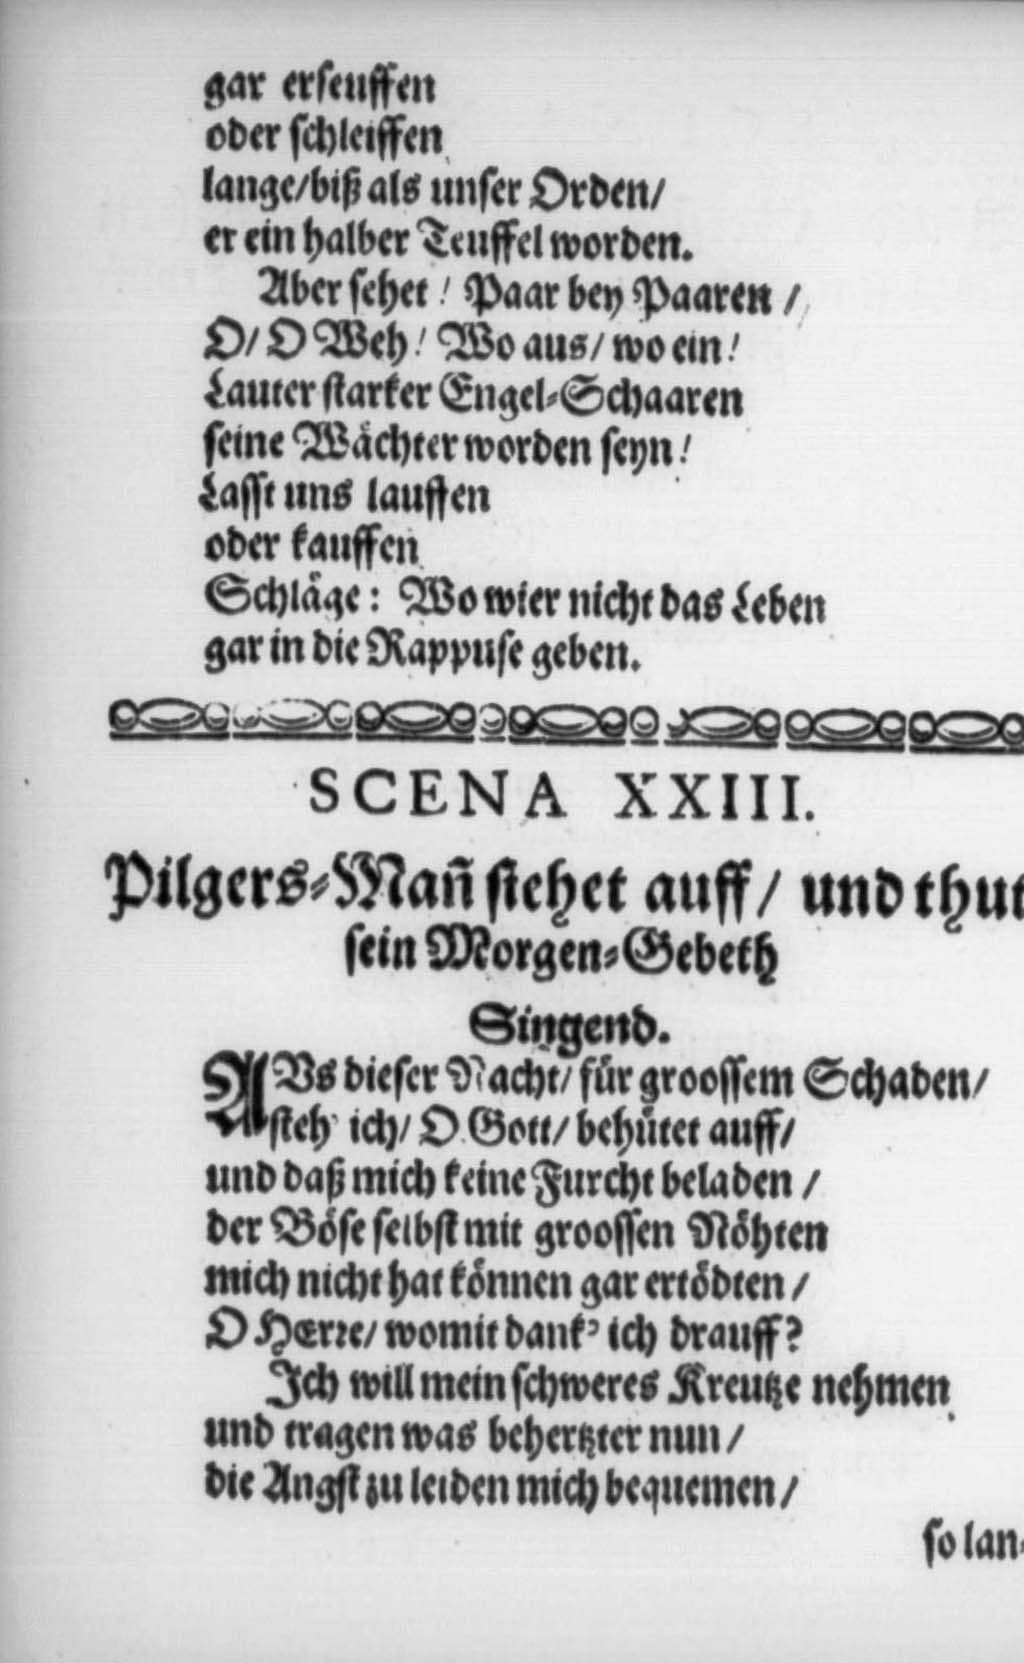 gar erseuffen
oder schleiffen
lange/biß als unser Orden/
er ein halber Teuffel worden.
Aber sehet! Paar bey Paaren /
O/ O Weh! Wo aus/ wo ein!
Lauter starker Engel-Schaaren
seine Wächter worden seyn!
Lasst uns lauffen
oder kauffen
Schläge: Wo wier nicht das Leben
gar in die Rappuse geben.
SCENA XXIII.
Pilgers-Mañ stehet auff/ und thut
sein Morgen-Gebeth
Singend.
AVs dieser Nacht/ für groossem Schaden/
steh' ich/ O Gott/ behütet auff/
und daß mich keine Furcht beladen /
der Böse selbst mit groossen Nöhten
mich nicht hat können gar ertödten /
O HErre/ womit dank' ich drauff?
Ich will mein schweres Kreutze nehmen
und tragen was behertzter nun /
die Angst zu leiden mich bequemen /
so lan-